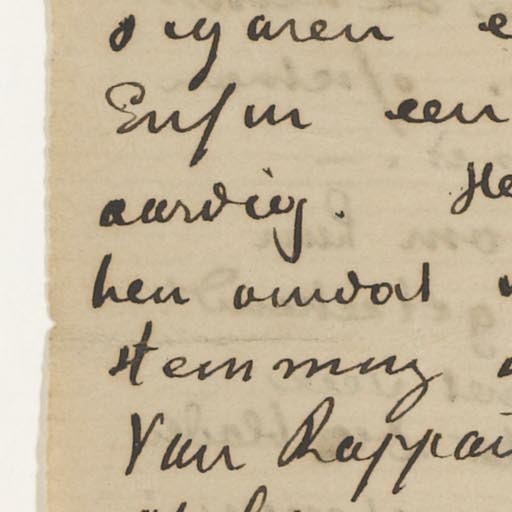 sigaren
Enfin een
aardig. He
hen omdat
stemming
Van Rappar